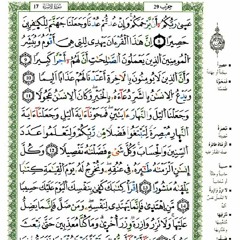 حزب 29
١٧
عَسَىٰ رَبُّكُمْ أَن يَرْحَمَكُمْ وَإِنْ عُدتُّمْ عُدْنَا وَجَعَلْنَا جَهَنَّمَ لِلْكَٰفِرِينَ
حَصِيرًا ٨ إِنَّ هَٰذَا ٱلْقُرْءَانَ يَهْدِى لِلَّتِى هِىَ أَقْوَمُ وَيُبَشِّرُ
ٱلْمُؤْمِنِينَ ٱلَّذِينَ يَعْمَلُونَ ٱلصَّٰلِحَٰتِ أَنَّ لَهُمْ أَجْرًا كَبِيرًا ٩
وَأَنَّ ٱلَّذِينَ لَا يُؤْمِنُونَ بِٱلْءَاخِرَةِ أَعْتَدْنَا لَهُمْ عَذَابًا أَلِيمًا ١٠
وَيَدْعُ ٱلْإِنسَٰنُ بِٱلشَّرِّ دُعَآءَهُۥ بِٱلْخَيْرِ وَكَانَ ٱلْإِنسَٰنُ عَجُولًا ١١
وَجَعَلْنَا ٱلَّيْلَ وَٱلنَّهَارَ ءَايَتَيْنِ فَمَحَوْنَآ ءَايَةَ ٱلَّيْلِ وَجَعَلْنَآ ءَايَةَ
ٱلنَّهَارِ مُبْصِرَةً لِّتَبْتَغُوا۟ فَضْلًا مِّن رَّبِّكُمْ وَلِتَعْلَمُوا۟ عَدَدَ
ٱلسِّنِينَ وَٱلْحِسَابَ وَكُلَّ شَىْءٍ فَصَّلْنَٰهُ تَفْصِيلًا ١٢ وَكُلَّ
إِنسَٰنٍ أَلْزَمْنَٰهُ طَٰٓئِرَهُۥ فِى عُنُقِهِۦ وَنُخْرِجُ لَهُۥ يَوْمَ ٱلْقِيَٰمَةِ كِتَٰبًا
يَلْقَىٰهُ مَنشُورًا ١٣ ٱقْرَأْ كِتَٰبَكَ كَفَىٰ بِنَفْسِكَ ٱلْيَوْمَ عَلَيْكَ
حَسِيبًا ١٤ مَّنِ ٱهْتَدَىٰ فَإِنَّمَا يَهْتَدِى لِنَفْسِهِۦ وَمَن ضَلَّ فَإِنَّمَا يَضِلُّ
عَلَيْهَا وَلَا تَزِرُ وَازِرَةٌ وِزْرَ أُخْرَىٰ وَمَا كُنَّا مُعَذِّبِينَ حَتَّىٰ نَبْعَثَ